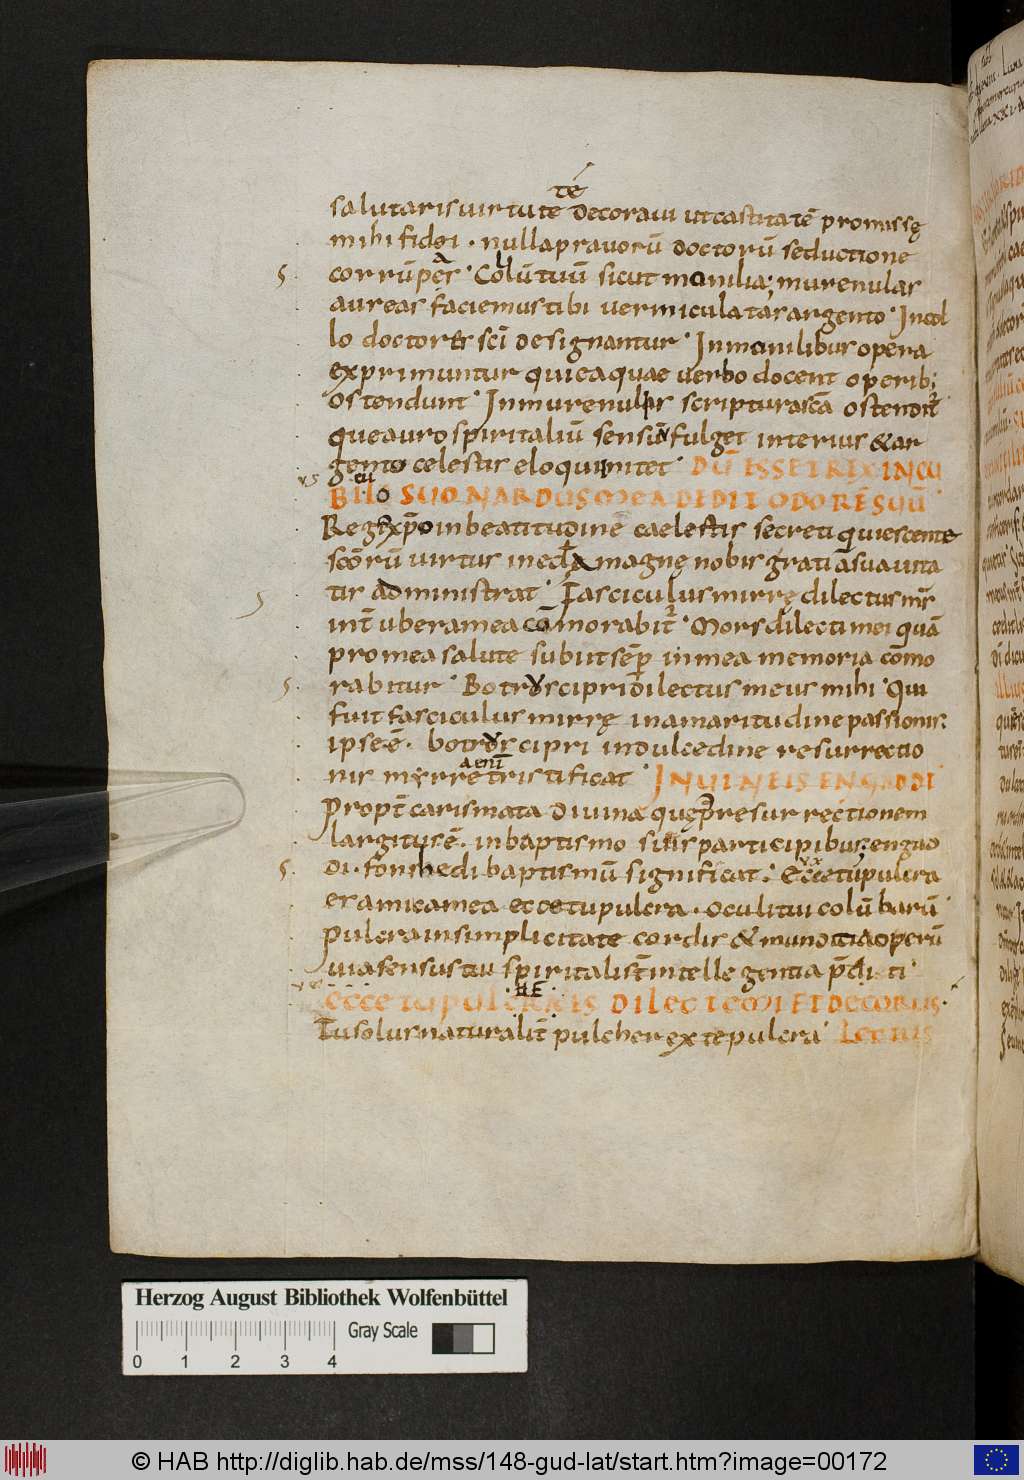 té
salutaris uirtute decoraui ut castitatē promissę
mihi fidei · nulla prauorū doctorū seductione
corrūperes · Collū tuū sicut monilia; murenulas
aureas faciemus tibi uermiculatas argento · In col
lo doctores sc̄i designantur · In monilibus opera
exprimuntur qui ea quae uerbo docent operib;
ostendunt · In murenulis scripturas sc̄a ostendit̄
que auro spiritaliū sensuū fulget interius & ar
gento celestis eloquii nitet · DŪ ESSET REX IN CU
BITO SUO NARDUS MEA DEDIT ODORĒ SUŪ
Rege xp̄o in beatitudine caelestis secreti quiescente
sc̄orū uirtus in ea magnę nobis gratiā suauita
tis administrat · Fasciculus mirrę dilectus m̄s
int̄ ubera mea cōmorabit̄ · Mors dilecti mei quā
pro mea salute subiit sēp in mea memoria cōmo
rabitur · Botrus cipri dilectus meus mihi · Qui
fuit fasciculus mirrę in amaritudine passionis:
ipse ē · botrus cipri in dulcedine resurrectio
nis myrre tristificat · IN UINEIS ENGADDI
Propt̄ carismata diuina quę p̄ resurrectionem
largitus ē · in baptismo suis participibus; engad
di · fons hedi baptismū significat · Ecce tu pulcra
es amica mea ecce tu pulcra · oculi tui colūbarū
pulcra in simplicitate cordis & munditia operū
uia sensus tui spiritalis int̄ intellegentia p̄diti
ECCE TU PULCER ES DILECTE MI ET DECORUS ·
Tu solus naturalit̄ pulcher ex te pulcra · LECTUS
Herzog August Bibliothek Wolfenbüttel
Gray Scale
0 1 2 3 4
© HAB http://diglib.hab.de/mss/148-gud-lat/start.htm?image=00172